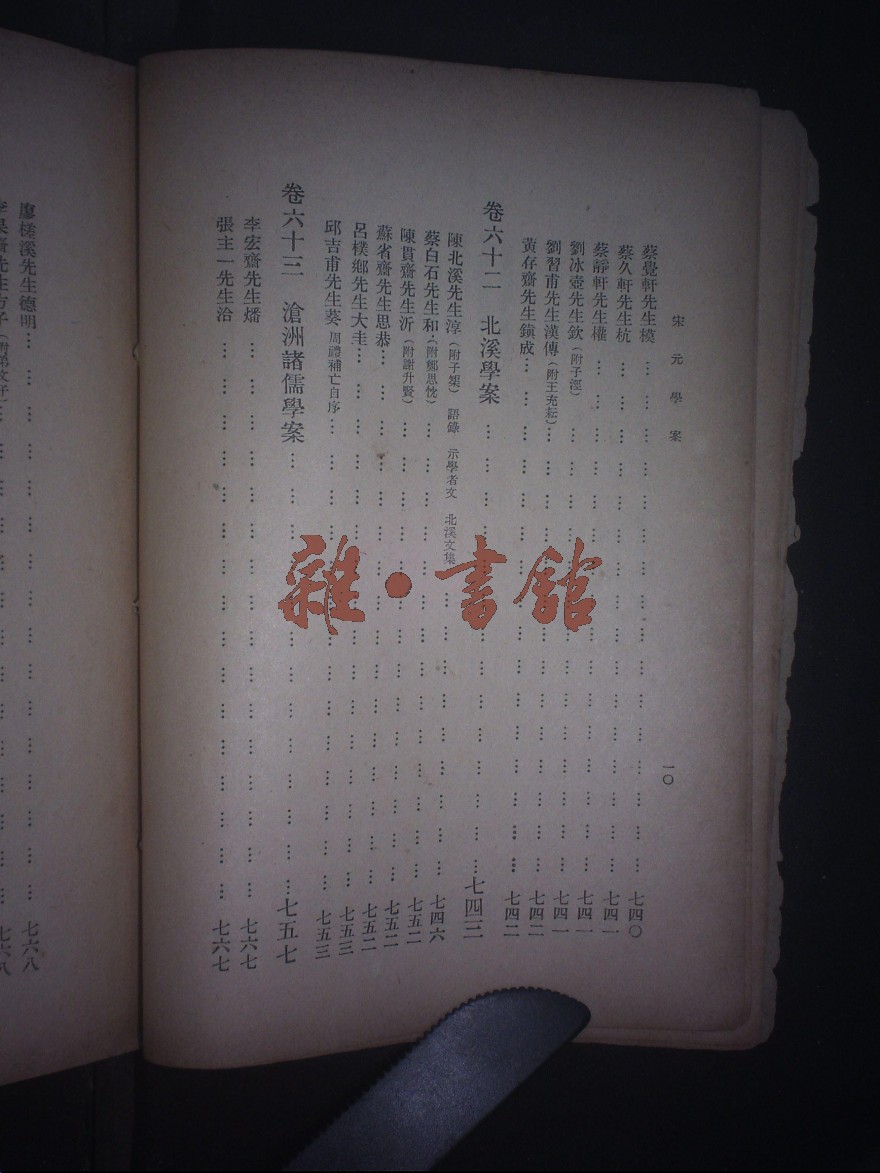 宋元學案
一〇
蔡覺軒先生模………七四〇
蔡久軒先生杭………七四一
蔡靜軒先生權………七四一
劉冰壺先生欽(附子涇)………七四一
劉習甫先生漢傳(附王充耘)………七四二
黃存齋先生鎮成………七四二
卷六十二 北溪學案………七四三
陳北溪先生淳(附子榘) 語錄 示學者文 北溪文集………七四六
蔡白石先生和(附鄭思忱)………七五二
陳貫齋先生沂(附謝升賢)………七五二
蘇省齋先生思恭………七五二
呂樸鄉先生大圭………七五三
邱吉甫先生葵 周禮補亡自序………七五三
卷六十三 滄洲諸儒學案………七五七
李宏齋先生燔………七六七
張主一先生洽………七六七
廖槎溪先生德明………七六八
先生方子(附弟文子)………七六八
雜·書館